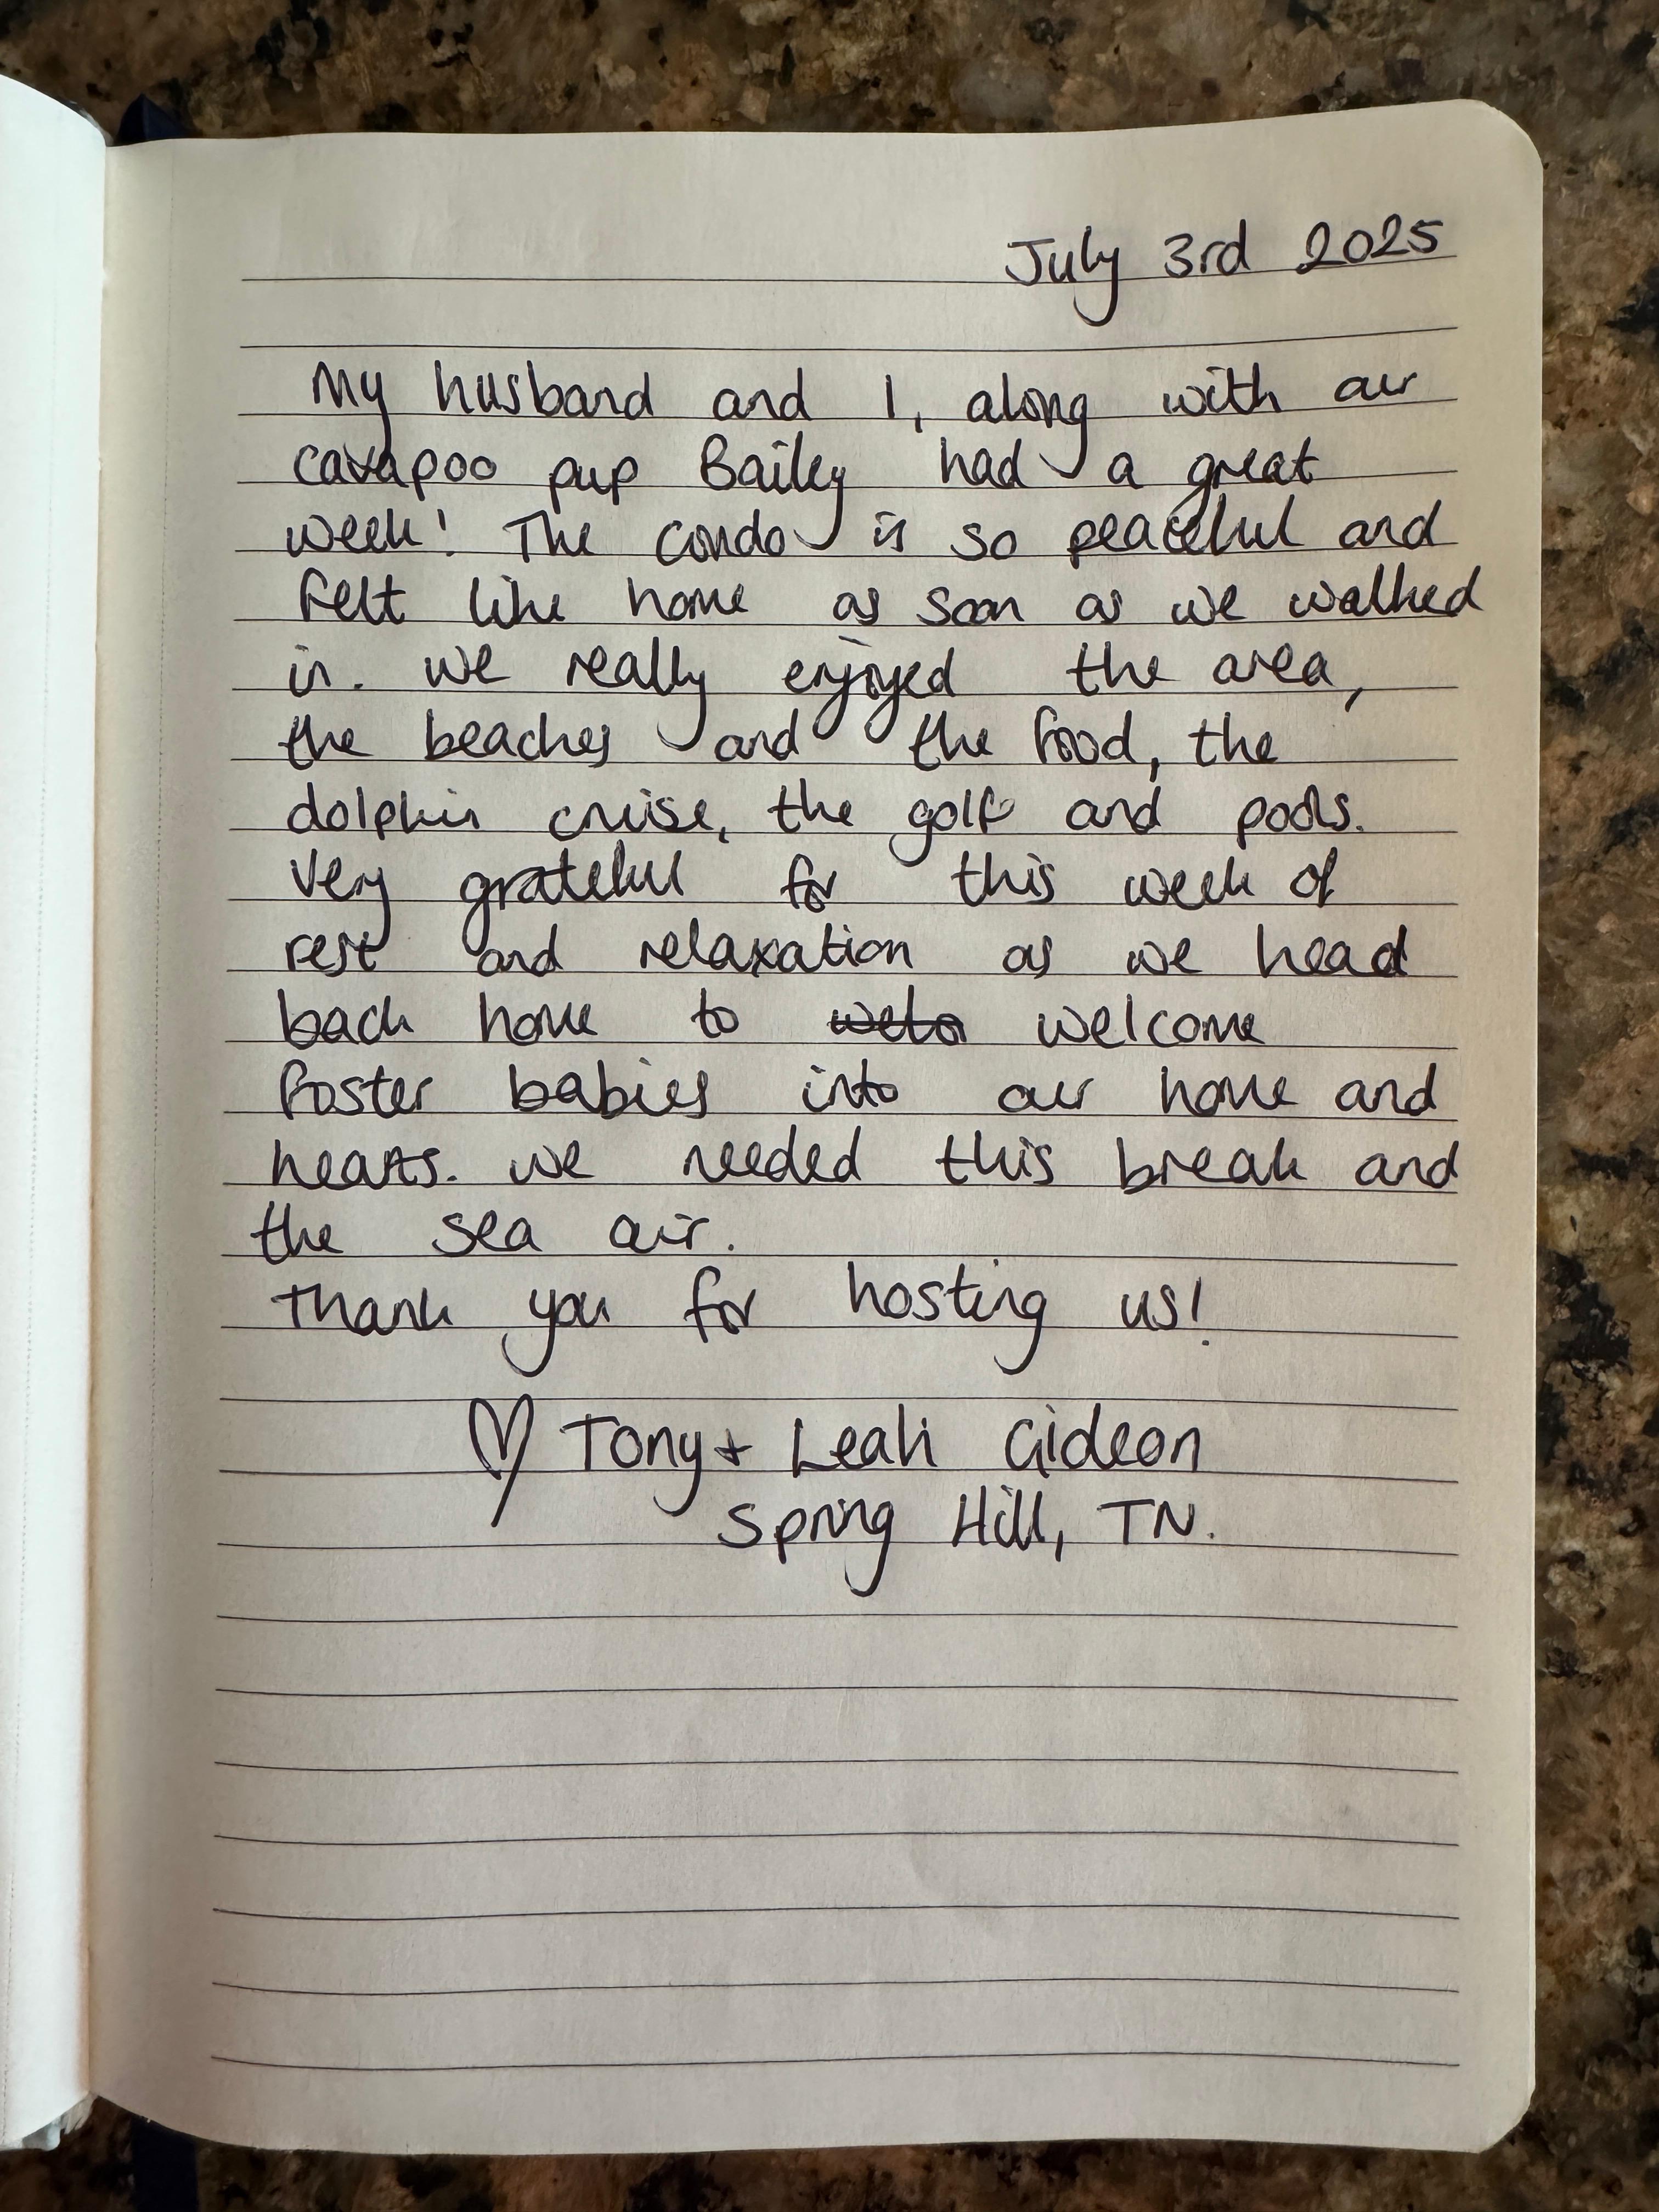 July 3rd 2025
My husband and I, along with our
cavapoo pup Bailey had a great
week! The condo is so peaceful and
felt like home as soon as we walked
in. We really enjoyed the area,
the beaches and the food, the
dolphin cruise, the golf and pools.
Very grateful for this week of
rest and relaxation as we head
back home to welcome
foster babies into our home and
hearts. We needed this break and
the sea air.
Thank you for hosting us!
♡ Tony + Leah Gideon
Spring Hill, TN.